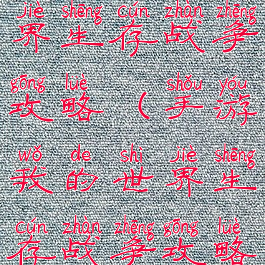 jiè shēng cún zhàn zhēng
界生存战争
gōng lüè shǒu yóu
攻略（手游
wǒ de shì jiè shēng
我的世界生
cún zhàn zhēng gōng lüè
存战争攻略